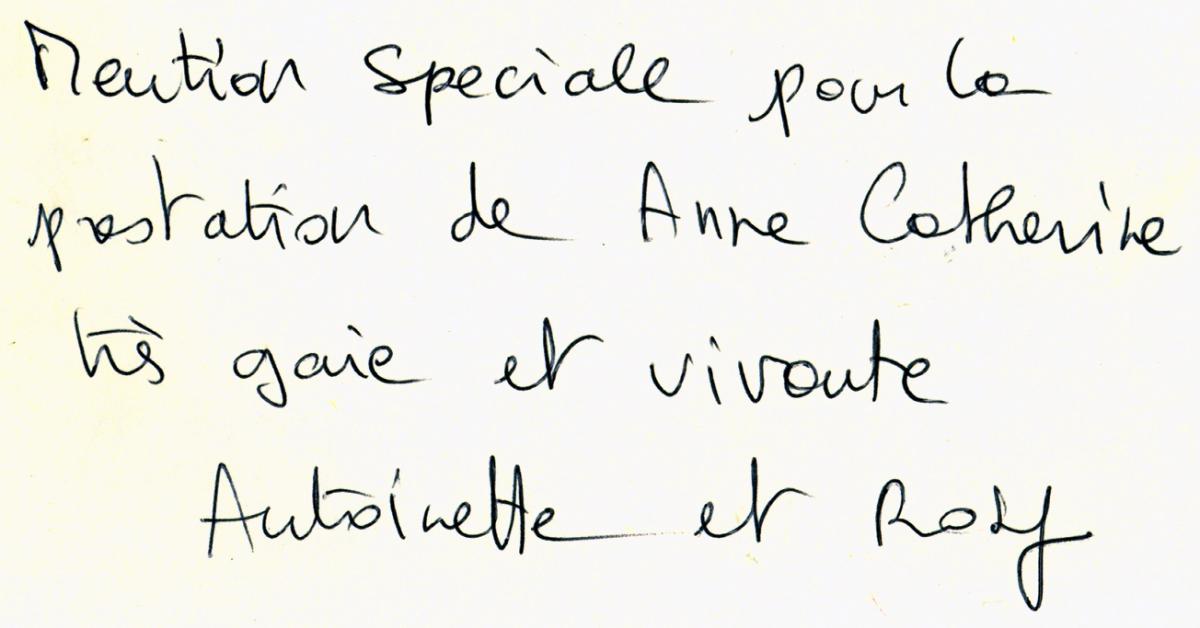 Mention Speciale pour la
prestation de Anne Catherine
très gaie et vivante
Antoinette et Rosy